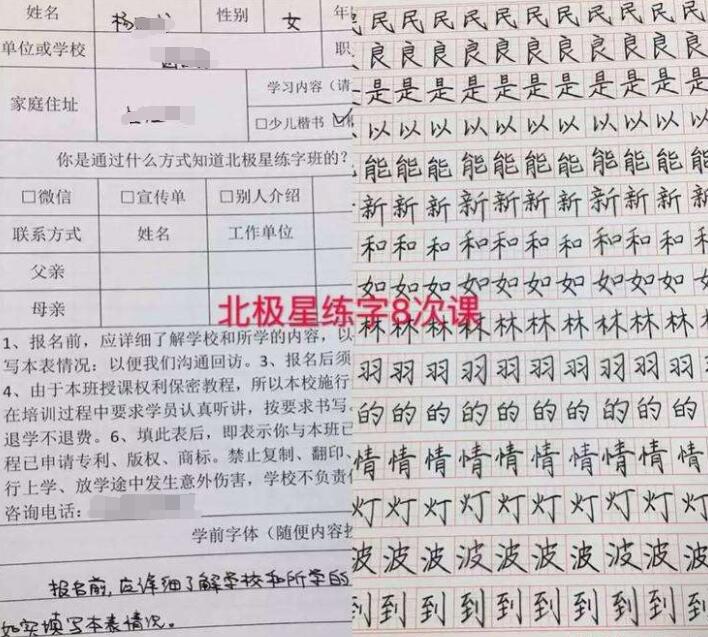 姓名 性别 女 年
单位或学校 职
家庭住址 学习内容（请
□少儿楷书
你是通过什么方式知道北极星练字班的？
□微信 □宣传单 □别人介绍
联系方式 姓名 工作单位
父亲
母亲
北极星练字8次课
1、报名前，应详细了解学校和所学的内容，以
写本表情况：以便我们沟通回访。3、报名后须
4、由于本班授课权利保密教程，所以本校施行
在培训过程中要求学员认真听讲，按要求书写。
退学不退费。6、填此表后，即表示你与本班已
程已申请专利、版权、商标。禁止复制、翻印、
行上学、放学途中发生意外伤害，学校不负责任
咨询电话：
学前字体（随便内容抄
报名前，应详细了解学校和所学的
如实填写本表情况。
民民民民民民民民民民
良良良良良良良良良良
是是是是是是是是是是
以以以以以以以以以以
能能能能能能能能能能
新新新新新新新新新新
和和和和和和和和和和
如如如如如如如如如如
林林林林林林林林林林
羽羽羽羽羽羽羽羽羽羽
的的的的的的的的的的
情情情情情情情情情情
灯灯灯灯灯灯灯灯灯灯
波波波波波波波波波
到到到到到到到到到